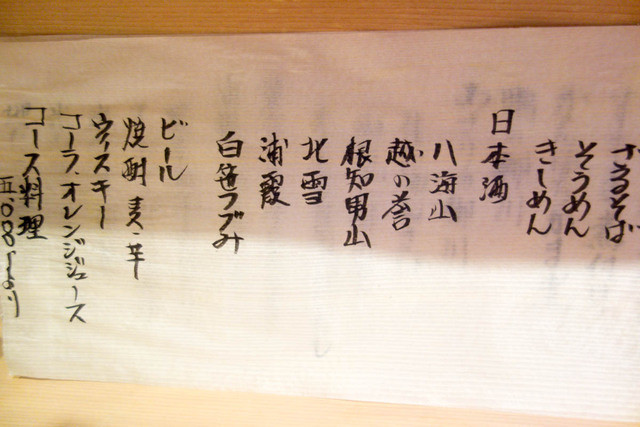 ざるそば
そうめん
きしめん
日本酒
八海山
越の誉
根知男山
北雪
浦霞
白笹つづみ
ビール
焼酎 麦・芋
ウィスキー
コーラ、オレンジジュース
コース料理
五、〇〇〇より